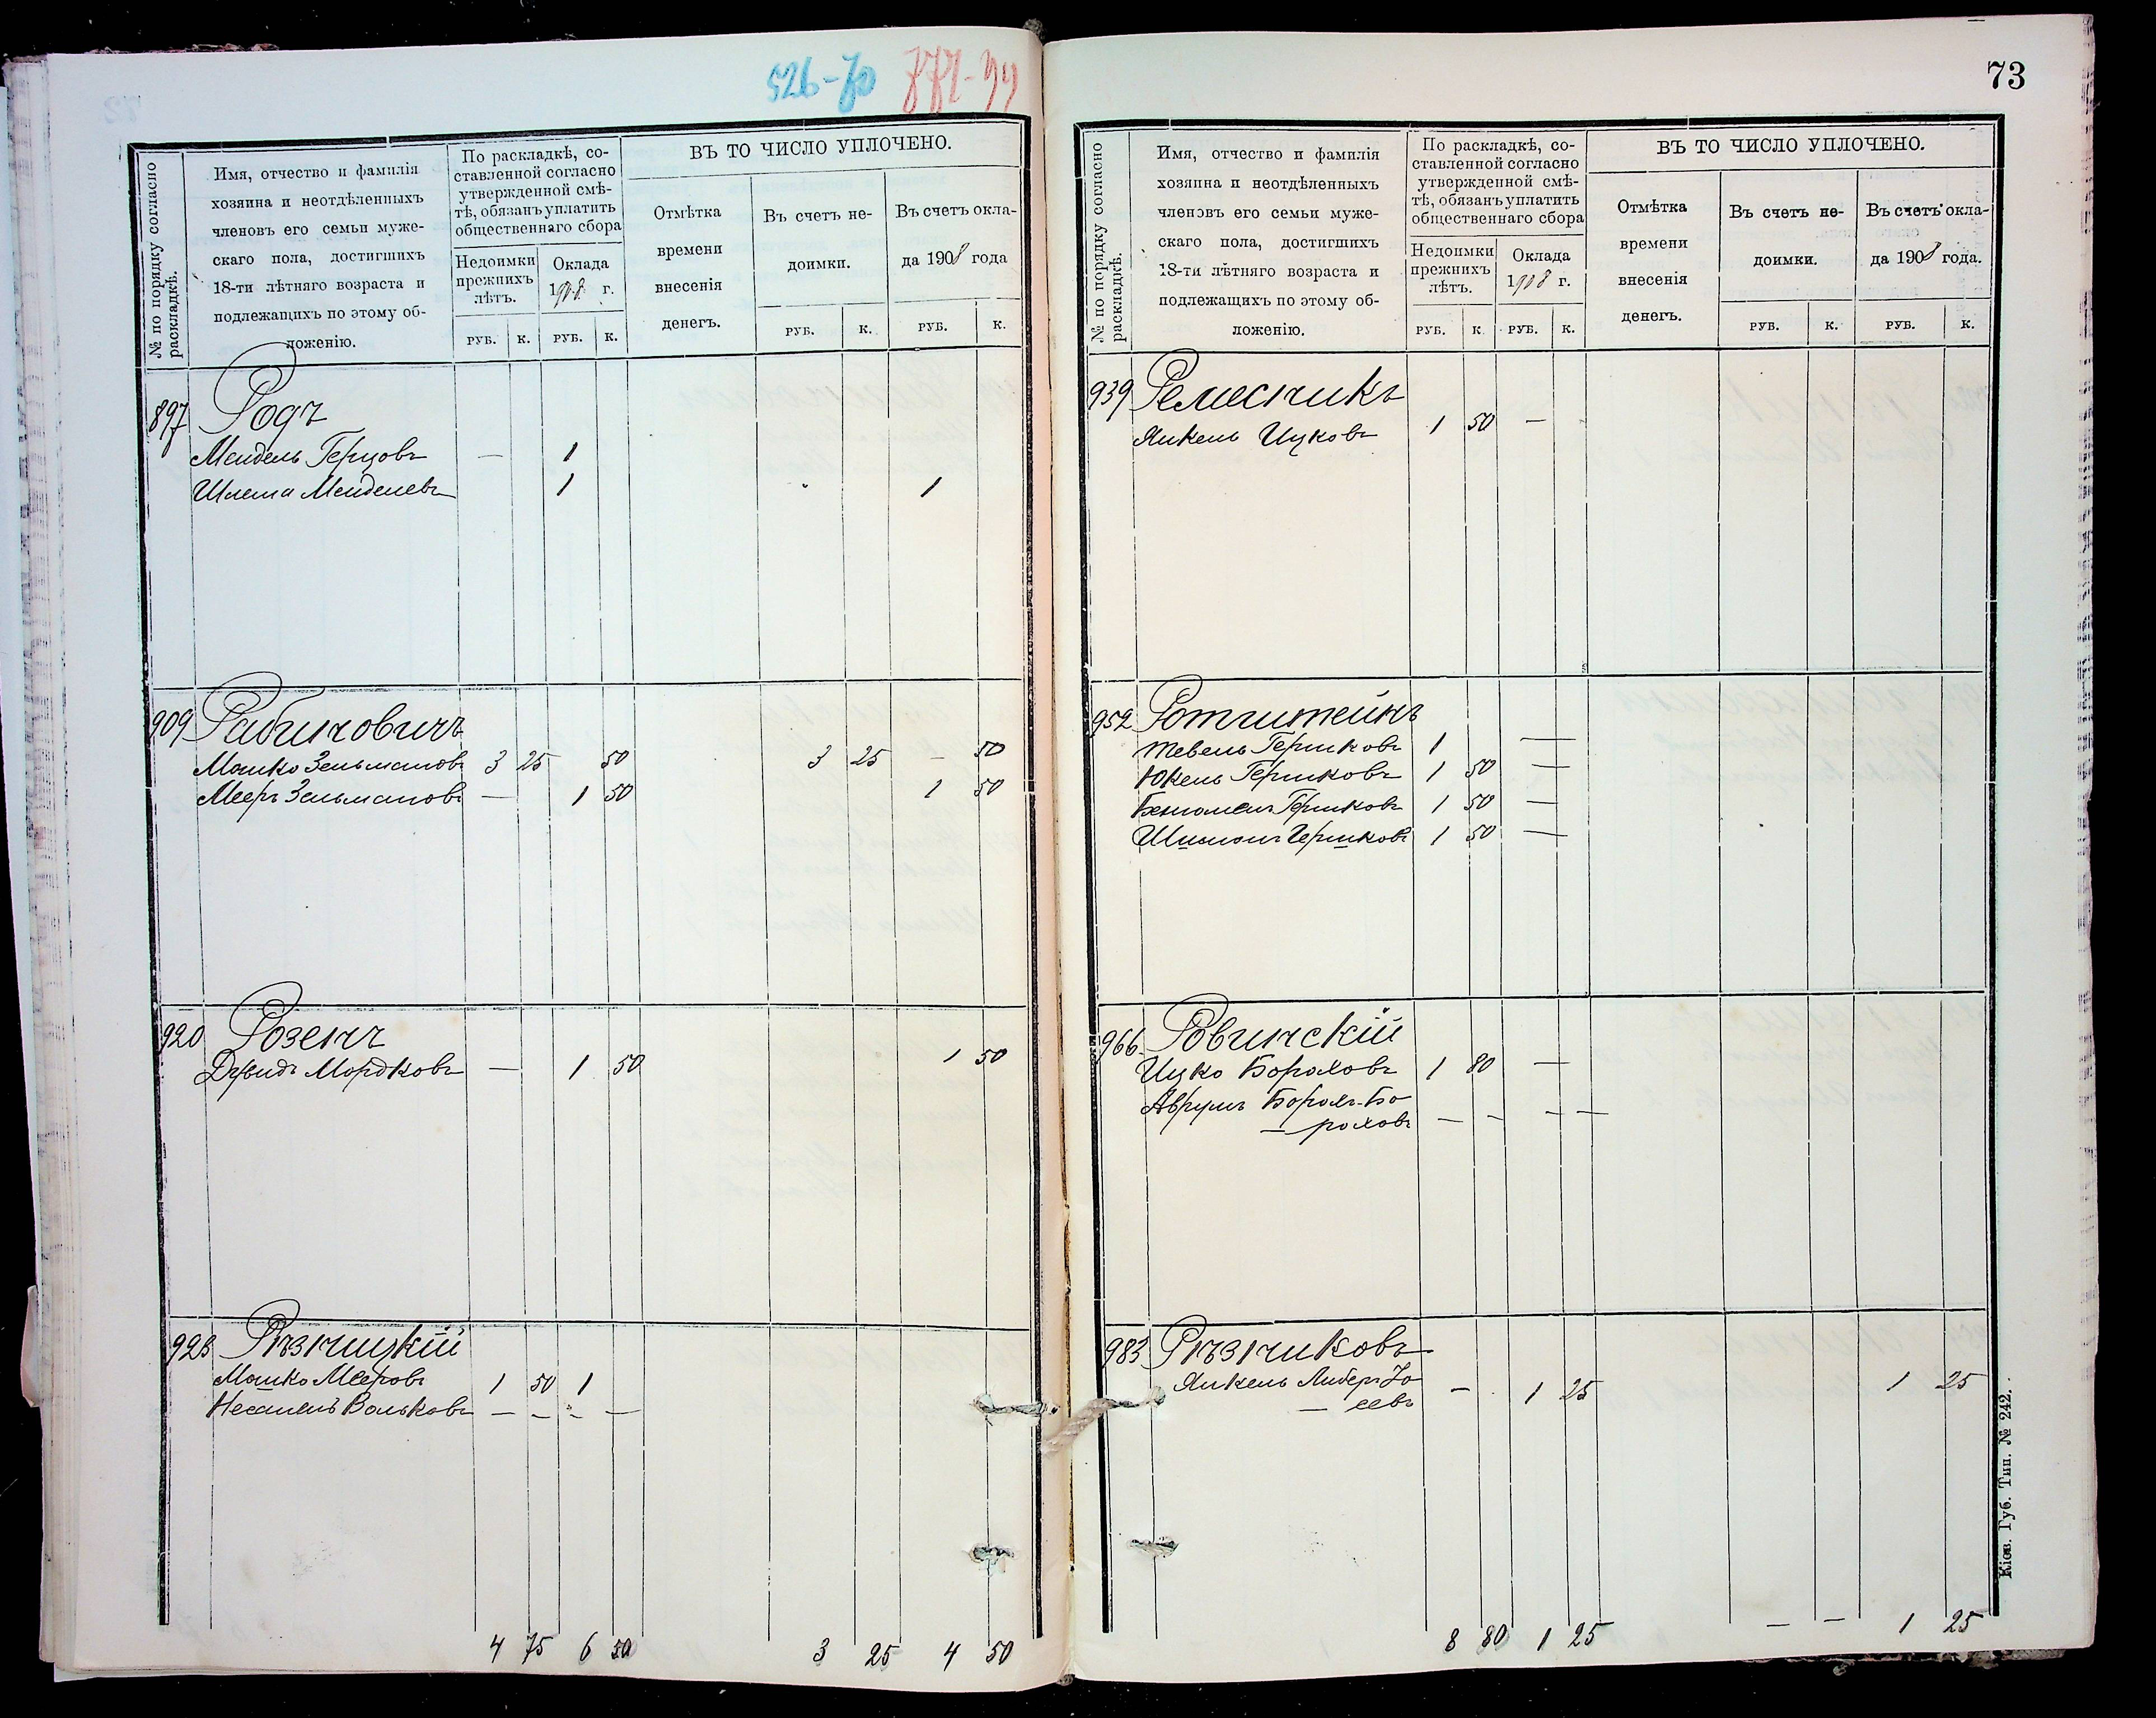 526-70 777-44
№ по порядку согласно раскладкѣ.
Имя, отчество и фамилія
хозяина и неотдѣленныхъ
членовъ его семьи муже-
скаго пола, достигшихъ
18-ти лѣтняго возраста и
подлежащихъ по этому об-
ложенію.
По раскладкѣ, со-
ставленной согласно
утвержденной смѣ-
тѣ, обязанъ уплатить
общественнаго сбора
Недоимки
прежнихъ
лѣтъ.
Оклада
1908 г.
ВЪ ТО ЧИСЛО УПЛОЧЕНО.
Отмѣтка
времени
внесенія
денегъ.
Въ счетъ не-
доимки.
Въ счетъ окла-
да 1908 года
РУБ. К. РУБ. К. РУБ. К. РУБ. К.
897 Родъ
Мендель Герцовъ — 1
Шлема Менделевъ 1 1
909 Рабиновичъ
Мошко Зельмановъ 3 25 50 3 25 — 50
Мееръ Зельмановъ — 1 50 1 50
920 Розенъ
Дувидъ Мордковъ — 1 50 1 50
928 Рѣзницкій
Мошко Мееровъ 1 50 1
Несанель Вольковъ — — — —
4 75 6 50 3 25 4 50
73
№ по порядку согласно раскладкѣ.
Имя, отчество и фамилія
хозяина и неотдѣленныхъ
членовъ его семьи муже-
скаго пола, достигшихъ
18-ти лѣтняго возраста и
подлежащихъ по этому об-
ложенію.
По раскладкѣ, со-
ставленной согласно
утвержденной смѣ-
тѣ, обязанъ уплатить
общественнаго сбора
Недоимки
прежнихъ
лѣтъ.
Оклада
1908 г.
ВЪ ТО ЧИСЛО УПЛОЧЕНО.
Отмѣтка
времени
внесенія
денегъ.
Въ счетъ не-
доимки.
Въ счетъ окла-
да 1908 года.
РУБ. К. РУБ. К. РУБ. К. РУБ. К.
939 Ремесникъ
Янкель Ицковъ 1 50 —
952 Ротштейнъ
Тевель Гершковъ 1 —
Юкель Гершковъ 1 50 —
Беньоменъ Гершковъ 1 50 —
Шимонъ Гершковъ 1 50 —
966 Ровинскій
Ицко Бороховъ 1 80 —
Аврумъ Борохъ-Бо
— роховъ — — — —
983 Рѣзниковъ
Янкель Либеръ Іо
— севъ — 1 25 1 25
8 80 1 25 — — 1 25
Кіев. Губ. Тип. № 242.